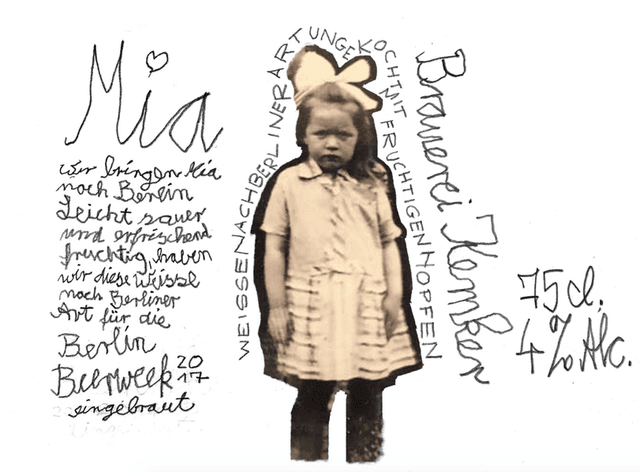 Mia
Wir bringen Mia
nach Berlin
Leicht sauer
und erfrischend
fruchtig, haben
wir diese Weisse
nach Berliner
Art für die
Berlin
Beerweek 2017
eingebraut
WEISSE NACH BERLINER ART UNGEKOCHT MIT FRUCHTIGEN HOPFEN
Brauerei Kemker
75 cl.
4% Alc.